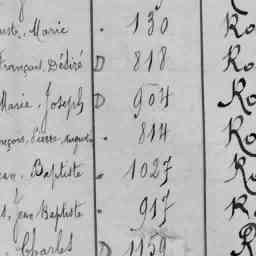 Marie . 130 Ro
François, Désiré D 818 Ro
Marie, Joseph D 904 Ro
Pierre, . 814 Ro
Baptiste . 1027 Ro
Jean Baptiste . 917 R
Charles D 1159 R